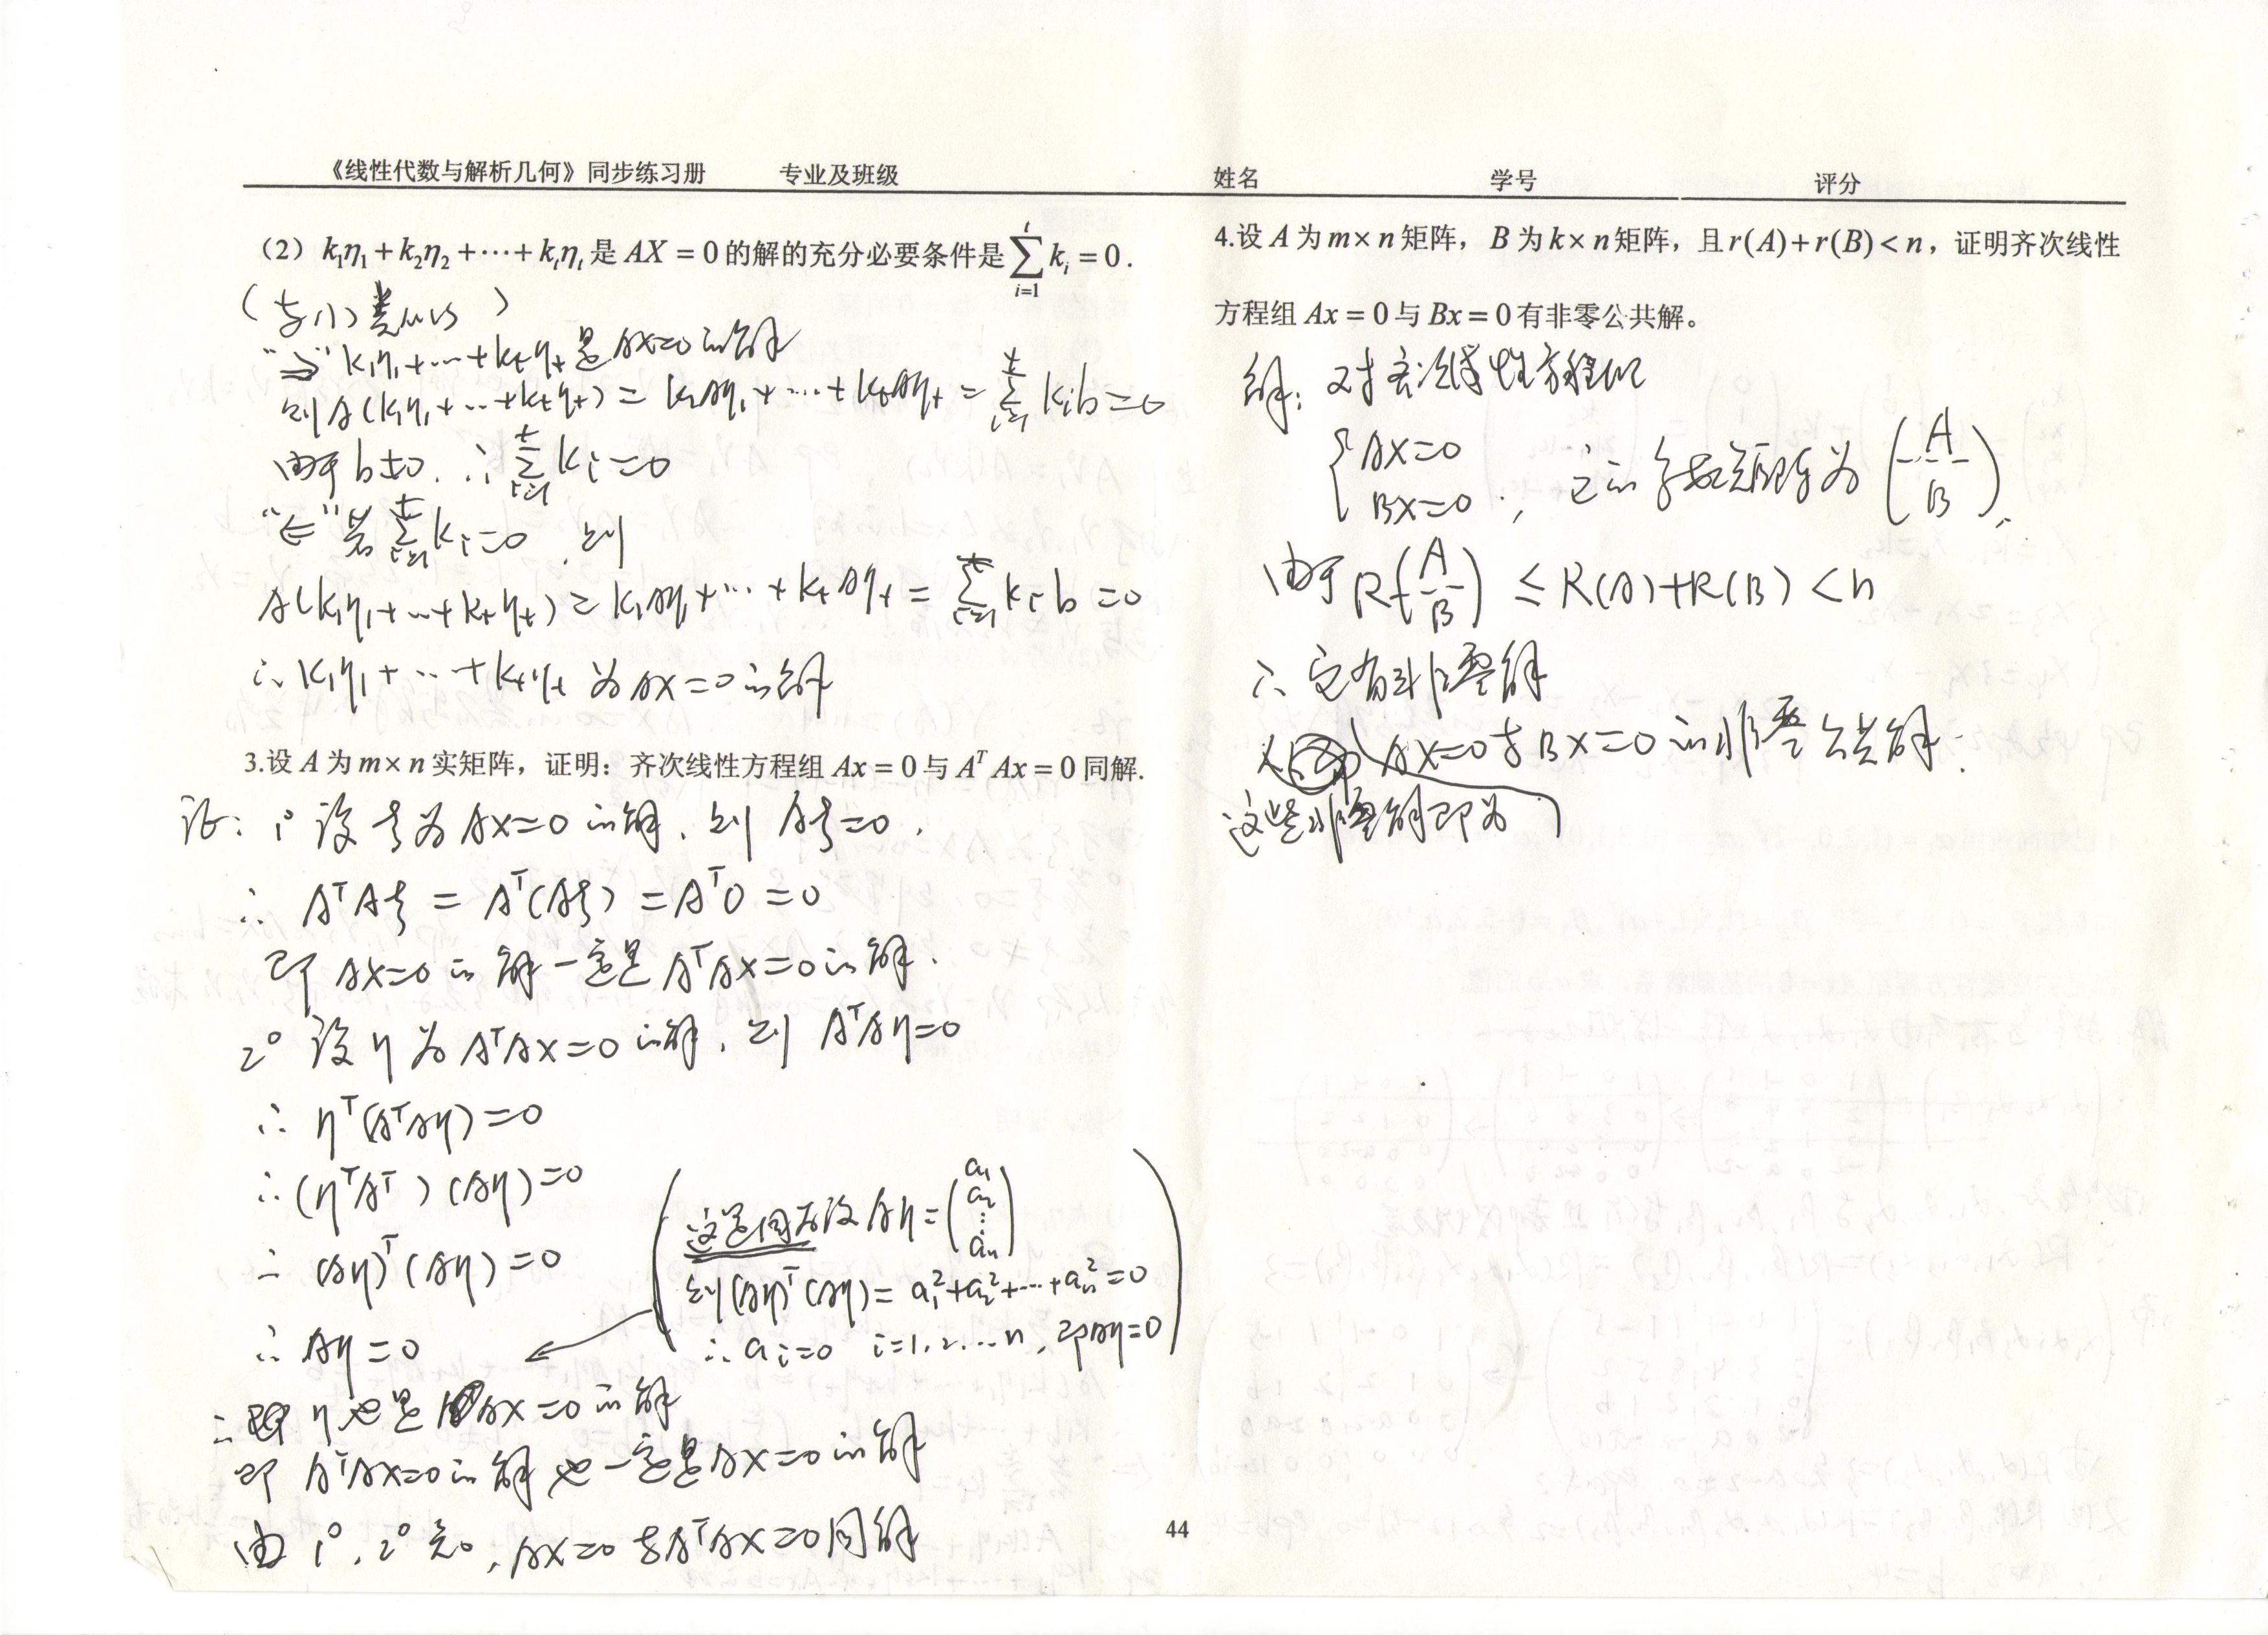 《线性代数与解析几何》同步练习册 专业及班级 姓名 学号 评分
（2）k₁η₁+k₂η₂+⋯+kₜηₜ是 AX = 0 的解的充分必要条件是∑ᵢ₌₁ᵗ kᵢ = 0.
（与(1)类似）
“⇒” k₁η₁+⋯+kₜηₜ是AX=0的解
则A(k₁η₁+⋯+kₜηₜ) = k₁Aη₁+⋯+kₜAηₜ = ∑ᵢ₌₁ᵗ kᵢb = 0
由于 b≠0. ∴ ∑ᵢ₌₁ᵗ kᵢ = 0
“⇐” 若 ∑ᵢ₌₁ᵗ kᵢ = 0 , 则
A(k₁η₁+⋯+kₜηₜ) = k₁Aη₁+⋯+kₜAηₜ = ∑ᵢ₌₁ᵗ kᵢb = 0
∴ k₁η₁+⋯+kₜηₜ 为 AX=0的解
3.设 A 为 m×n 实矩阵，证明：齐次线性方程组 Ax = 0 与 AᵀAx = 0 同解.
证: 1° 设 ξ 为 AX=0 的解, 则 Aξ=0,
∴ AᵀAξ = Aᵀ(Aξ) = Aᵀ0 = 0
即 AX=0的解一定是AᵀAX=0的解.
2° 设 η 为 AᵀAX=0的解, 则 AᵀAη=0
∴ ηᵀ(AᵀAη)=0
∴ (ηᵀAᵀ)(Aη)=0
∴ (Aη)ᵀ(Aη)=0
(这是因为设 Aη = (a₁ a₂ ⋮ aₙ)
则(Aη)ᵀ(Aη) = a₁²+a₂²+⋯+aₙ²=0
∴ aᵢ=0 i=1,2,⋯n, 即Aη=0)
∴ Aη=0
∴ 即 η也是 AX=0的解
即 AᵀAX=0的解也一定是AX=0的解
由 1°, 2° 知, AX=0与AᵀAX=0同解
4.设 A 为 m×n 矩阵，B 为 k×n 矩阵，且 r(A)+r(B)<n，证明齐次线性
方程组 Ax = 0 与 Bx = 0 有非零公共解。
解: 对齐次线性方程组
{ AX=0
BX=0 , 它的系数矩阵为 (A/B),
由于 R(A/B) ≤ R(A)+R(B) < n
∴ 它有非零解
AX=0与BX=0的非零公共解.
这些非零解即为
44